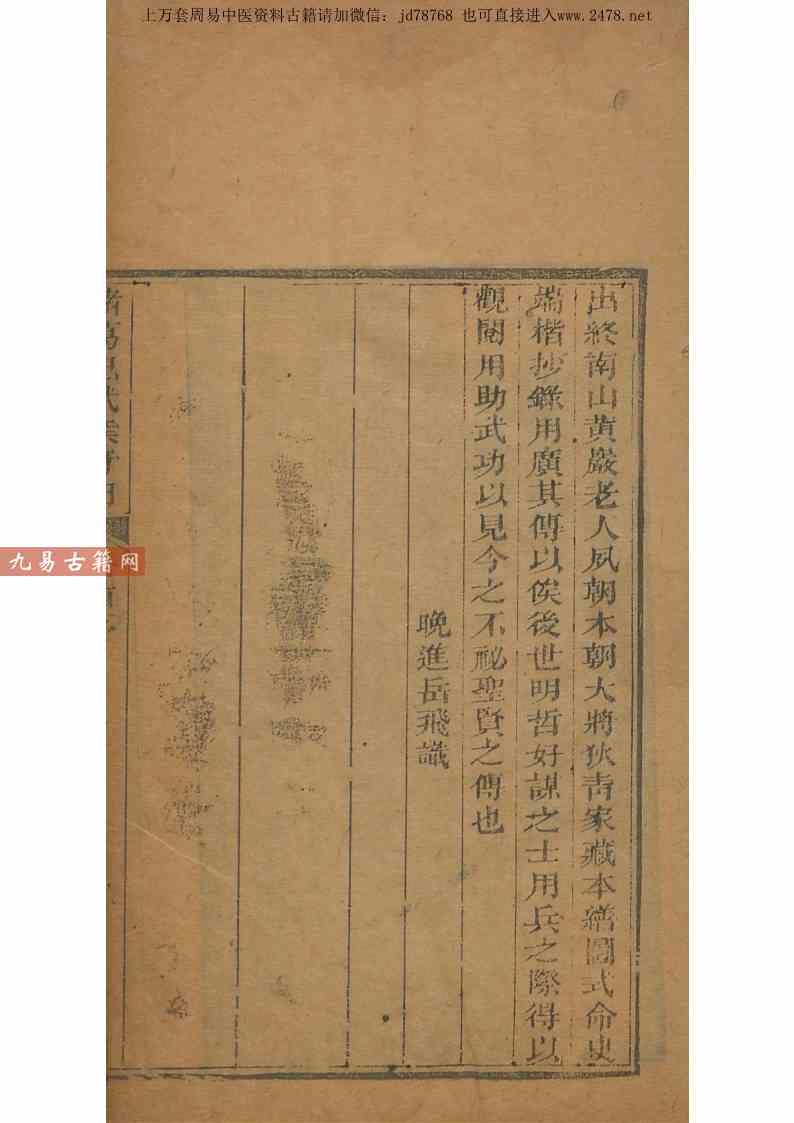 上万套周易中医资料古籍请加微信：jd78768 也可直接进入www.2478.net
出終南山黄巖老人夙朝本朝大將狄青家藏本繕圖式命史
端楷抄錄用廣其傳以俟後世明哲好謀之士用兵之際得以
觀閱用助武功以見今之不祕聖賢之傳也
晚進岳飛識
諸葛武侯奇門
九易古籍网